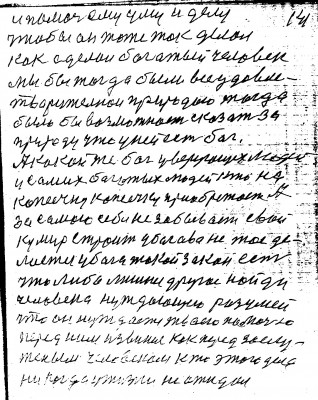 и помочему уму и делу 141
чтобы он тоже так делал
как сделал богатый человек
мы бы тогда были все удовле-
творительной природою тогда
было бы возможност сказат за
природу что у ней ест бог.
А какой же бог у верующих людей
у самих богатых людей кто на
копечку копечку приобретает А
за самого себя не забывает свой
кумир строит у бога не тое де-
лается у бога такой закон ест
что либо лишне другое найди
человека нуждающего разумей
что он нуждается твоею помочею
перед ним извинис как перед заслу-
женым человеком кто этого дела
никогда у жизни не ожидал